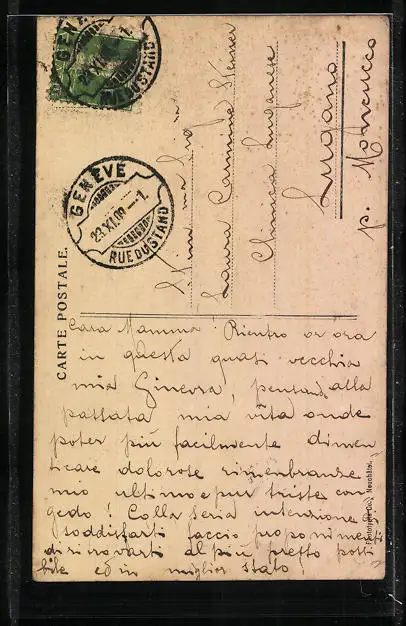 GENÈVE
23.XI.09.—1.
RUE DU STAND
CARTE POSTALE.
Laura Cammina
Lugano
p.
Cara Mamma! Rientro or ora
in questa quasi vecchia
mia Ginevra, pensando alla
passata mia vita onde
poter più facilmente dimen
ticare dolorose rimembranze
mio ultimo e pur triste con
gedo! Colla seria intenzione
soddisfarti faccio proponimen
di ritrovarti al più presto possi
bile ed in miglior stato!
Neuchâtel.